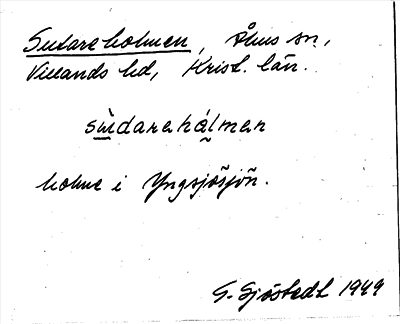 Sutareholmen, Åhus sn.,
Villands hd, Krist. län.
sùdarehálmen
holme i Yngsjösjön.
G. Sjöstedt 1949